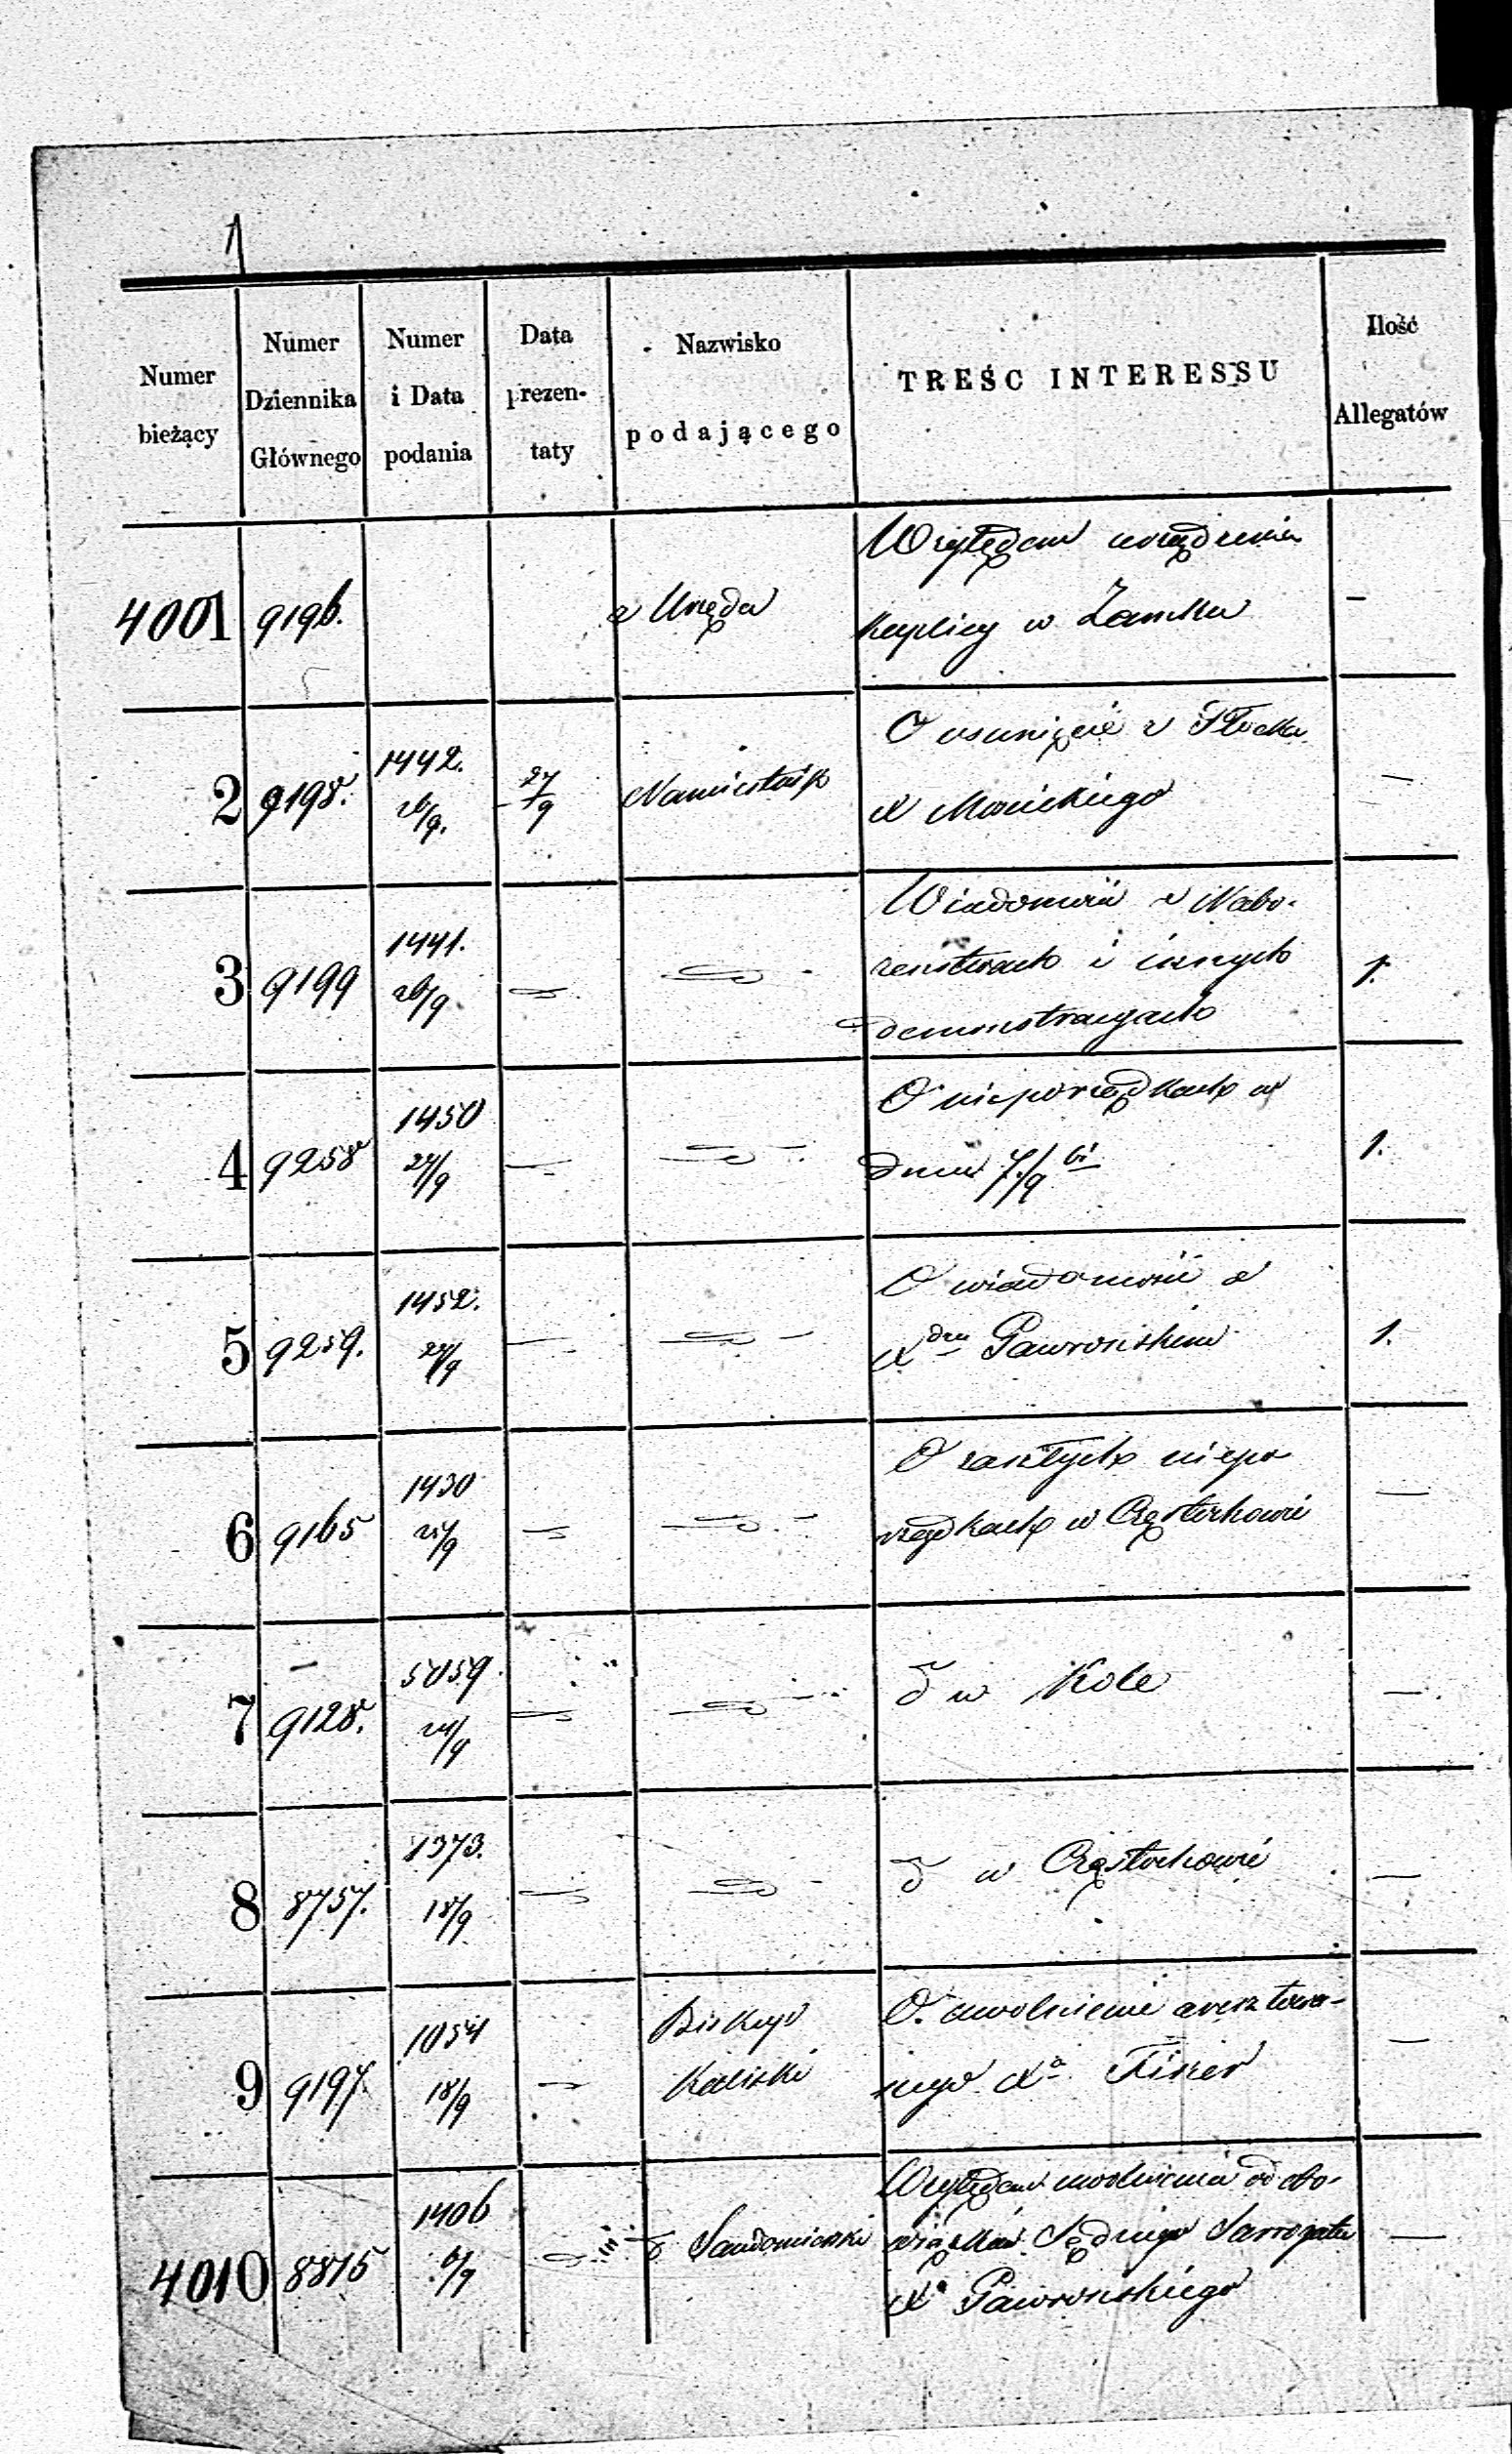 1
Numer bieżący
Numer Dziennika Głównego
Numer i Data podania
Data prezen- taty
Nazwisko podającego
TREŚC INTERESSU
Ilość Allegatów
4001 9196. z Urzędu Względem urządzenia
kaplicy w Zamku —
2 9198. 1442. 26/9. 27/9 Namiestnik O usunięcie z Płocka
X —
3 9199 1441. 26/9 Wiadomość o Nabo-
żeństwach i innych
demonstracyach 1.
4 9258 1450 27/9 O nieporządkach w
dniu 1.
5 9259. 1452. 27/9 O wiadomość o
X dzu Gawrońskim 1.
6 9165 1430 25/9 O zaszłych niepo
rządkach w Częstochowie —
7 9128. 5059. 24/9 w Kole —
8 8757. 1373. 18/9 w Częstochowie —
9 9197. 1054 18/9 Biskup
Kaliski O uwolnienie aresztowa-
nego Xa Fiszer —
4010 8815 1406 Sandomierski Względem uwolnienia od obo-
wiązków Sędziego Surrogata
Xa Gawrońskiego —